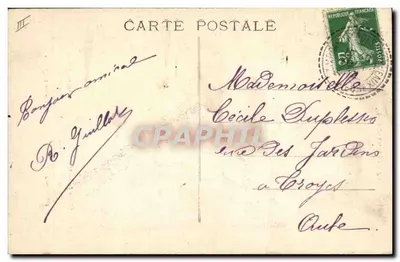 III
CARTE POSTALE
REPUBLIQUE FRANÇAISE
5c
POSTES
Bonjour amical
R. Guillot
Mademoiselle
Cécile Duplessis
rue des Jardins
à Troyes
Aube
CPAPHIL